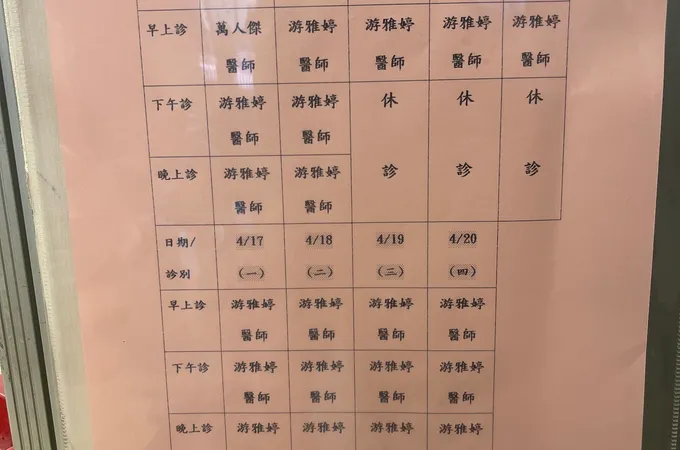 早上診 萬人傑 游雅婷 游雅婷 游雅婷 游雅婷
醫師 醫師 醫師 醫師 醫師
下午診 游雅婷 游雅婷 休 休 休
醫師 醫師
診 診 診
晚上診 游雅婷 游雅婷
醫師 醫師
日期/ 4/17 4/18 4/19 4/20
診別 (一) (二) (三) (四)
早上診 游雅婷 游雅婷 游雅婷 游雅婷
醫師 醫師 醫師 醫師
下午診 游雅婷 游雅婷 游雅婷 游雅婷
醫師 醫師 醫師 醫師
晚上診 游雅婷 游雅婷 游雅婷 游雅婷